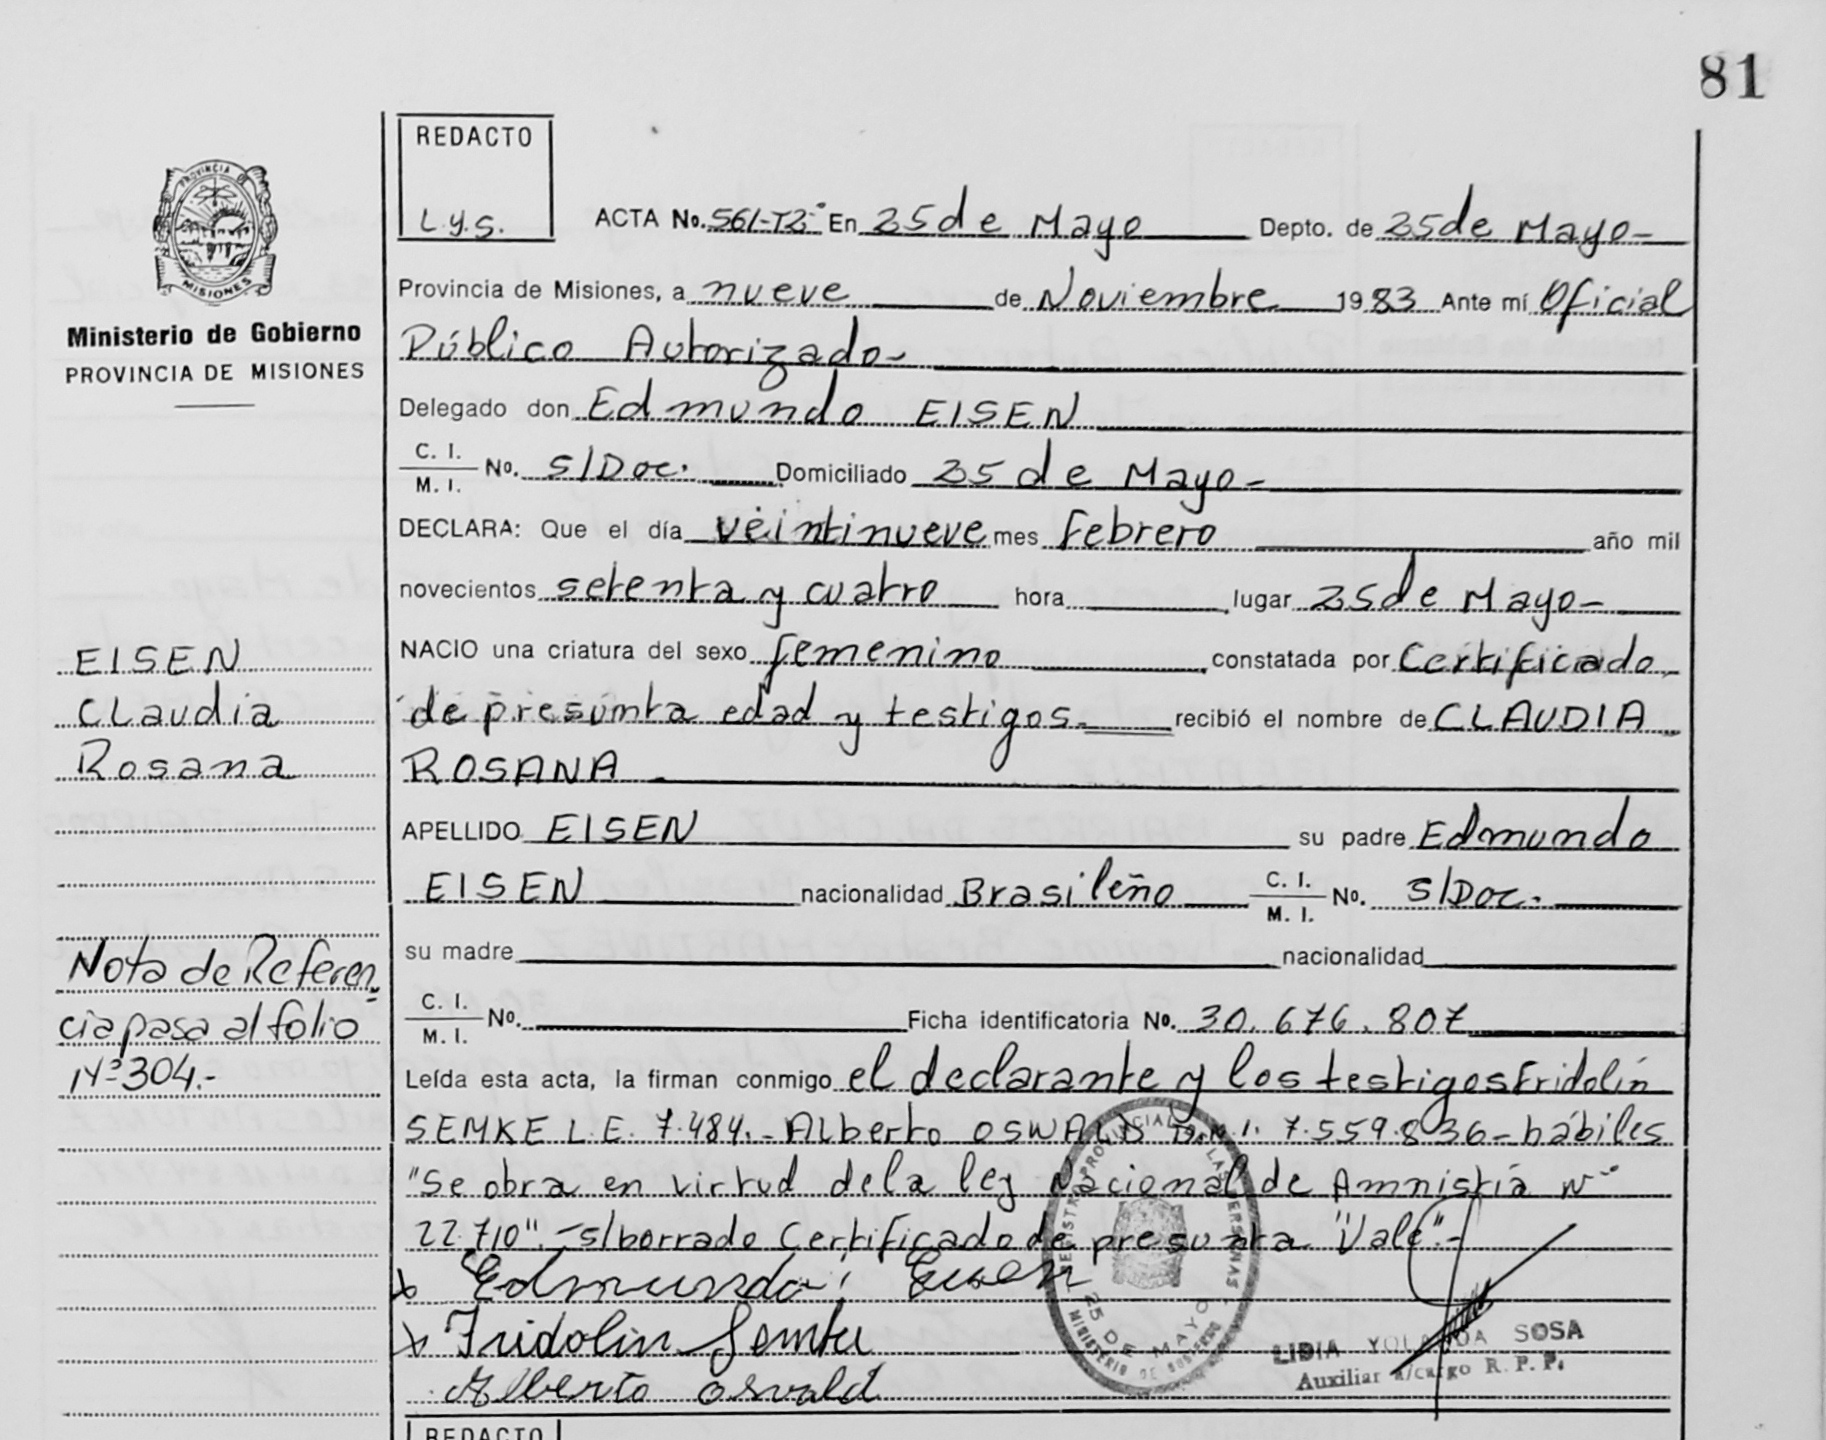 81
REDACTO
L.y.S.
ACTA No. 561-T2º En 25 de Mayo Depto. de 25 de Mayo-
PROVINCIA DE
MISIONES
Ministerio de Gobierno
PROVINCIA DE MISIONES
Provincia de Misiones, a nueve de Noviembre 1983 Ante mí Oficial
Público Autorizado-
Delegado don Edmundo EISEN
C. I.
M. I. No. S/Doc. Domiciliado 25 de Mayo-
DECLARA: Que el día veintinueve mes Febrero año mil
novecientos setenta y cuatro hora lugar 25 de Mayo-
NACIO una criatura del sexo femenino constatada por Certificado
de presunta edad y testigos- recibió el nombre de CLAUDIA
ROSANA
APELLIDO EISEN su padre Edmundo
EISEN nacionalidad Brasileño C. I.
M. I. No. S/Doc.
su madre nacionalidad
C. I.
M. I. No. Ficha identificatoria No. 30.676.807
Leída esta acta, la firman conmigo el declarante y los testigos Fridolín
SEMKE L.E. 7.484.- Alberto OSWALD D.N.I. 7.559.836- hábiles
"Se obra en virtud de la ley Nacional de Amnistía Nº
22.710".- s/borrado Certificado de presunta "Vale".-
x Edmundo Eisen
x Fridolin Semke
Alberto Oswald
EISEN
Claudia
Rosana
Nota de Referen
cia pasa al folio
Nº 304.-
REGISTRO PROVINCIAL DE LAS PERSONAS
25 DE MAYO
MINISTERIO DE GOBIERNO
LIDIA YOLANDA SOSA
Auxiliar a/cargo R. P. P.
REDACTO